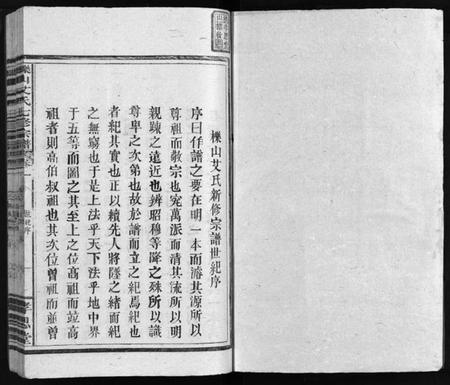 櫟山艾氏新修宗譜世紀序
序曰作譜之要在明一本而濬其源所以
尊祖而敬宗也寔萬派而清其流所以明
親踈之遠近也辨昭穆等降之殊所以識
尊卑之次第也故於譜而立之紀焉紀也
者紀其實也正以續先人將墜之緒而紀
之無窮也于是上法乎天下法乎地中界
于五等而圖之其至上之位高祖而並高
祖者則高伯叔祖也其次位曾祖而並曾
櫟山艾氏
宗譜